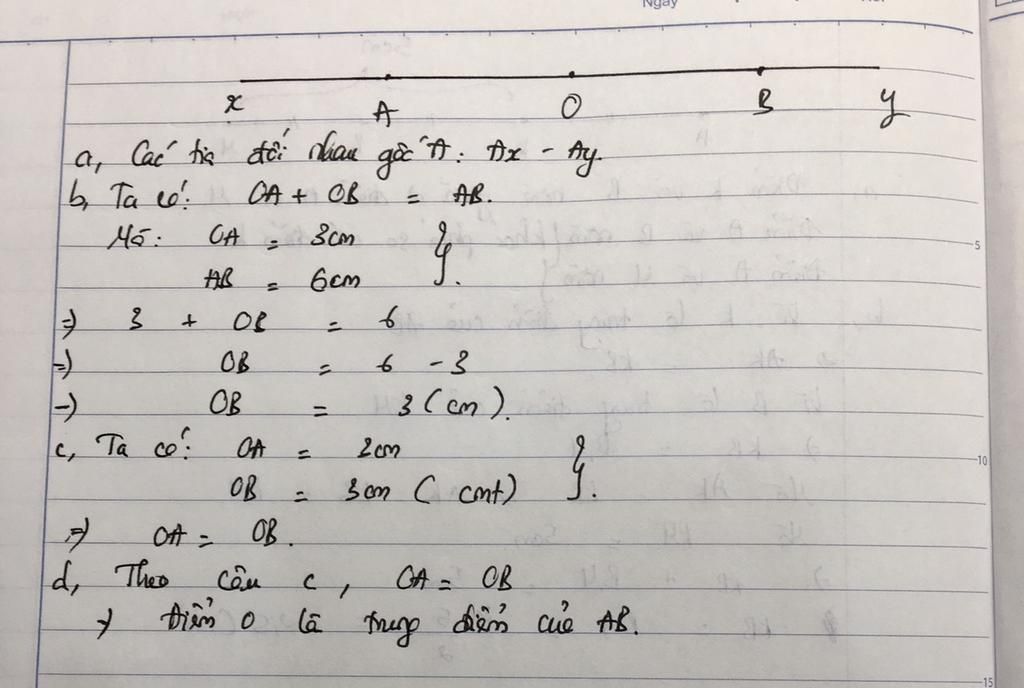 Ngày
x A O B y
a, Các tia đối nhau gốc A: Ax - Ay.
b, Ta có: OA + OB = AB.
Mà: OA = 3cm
AB = 6cm
=) 3 + OB = 6
=) OB = 6 - 3
-) OB = 3 (cm).
c, Ta có: OA = 3cm
OB = 3cm ( cmt)
=) OA = OB.
d, Theo câu c, OA = OB
=) điểm O là trung điểm của AB.
5
10
15